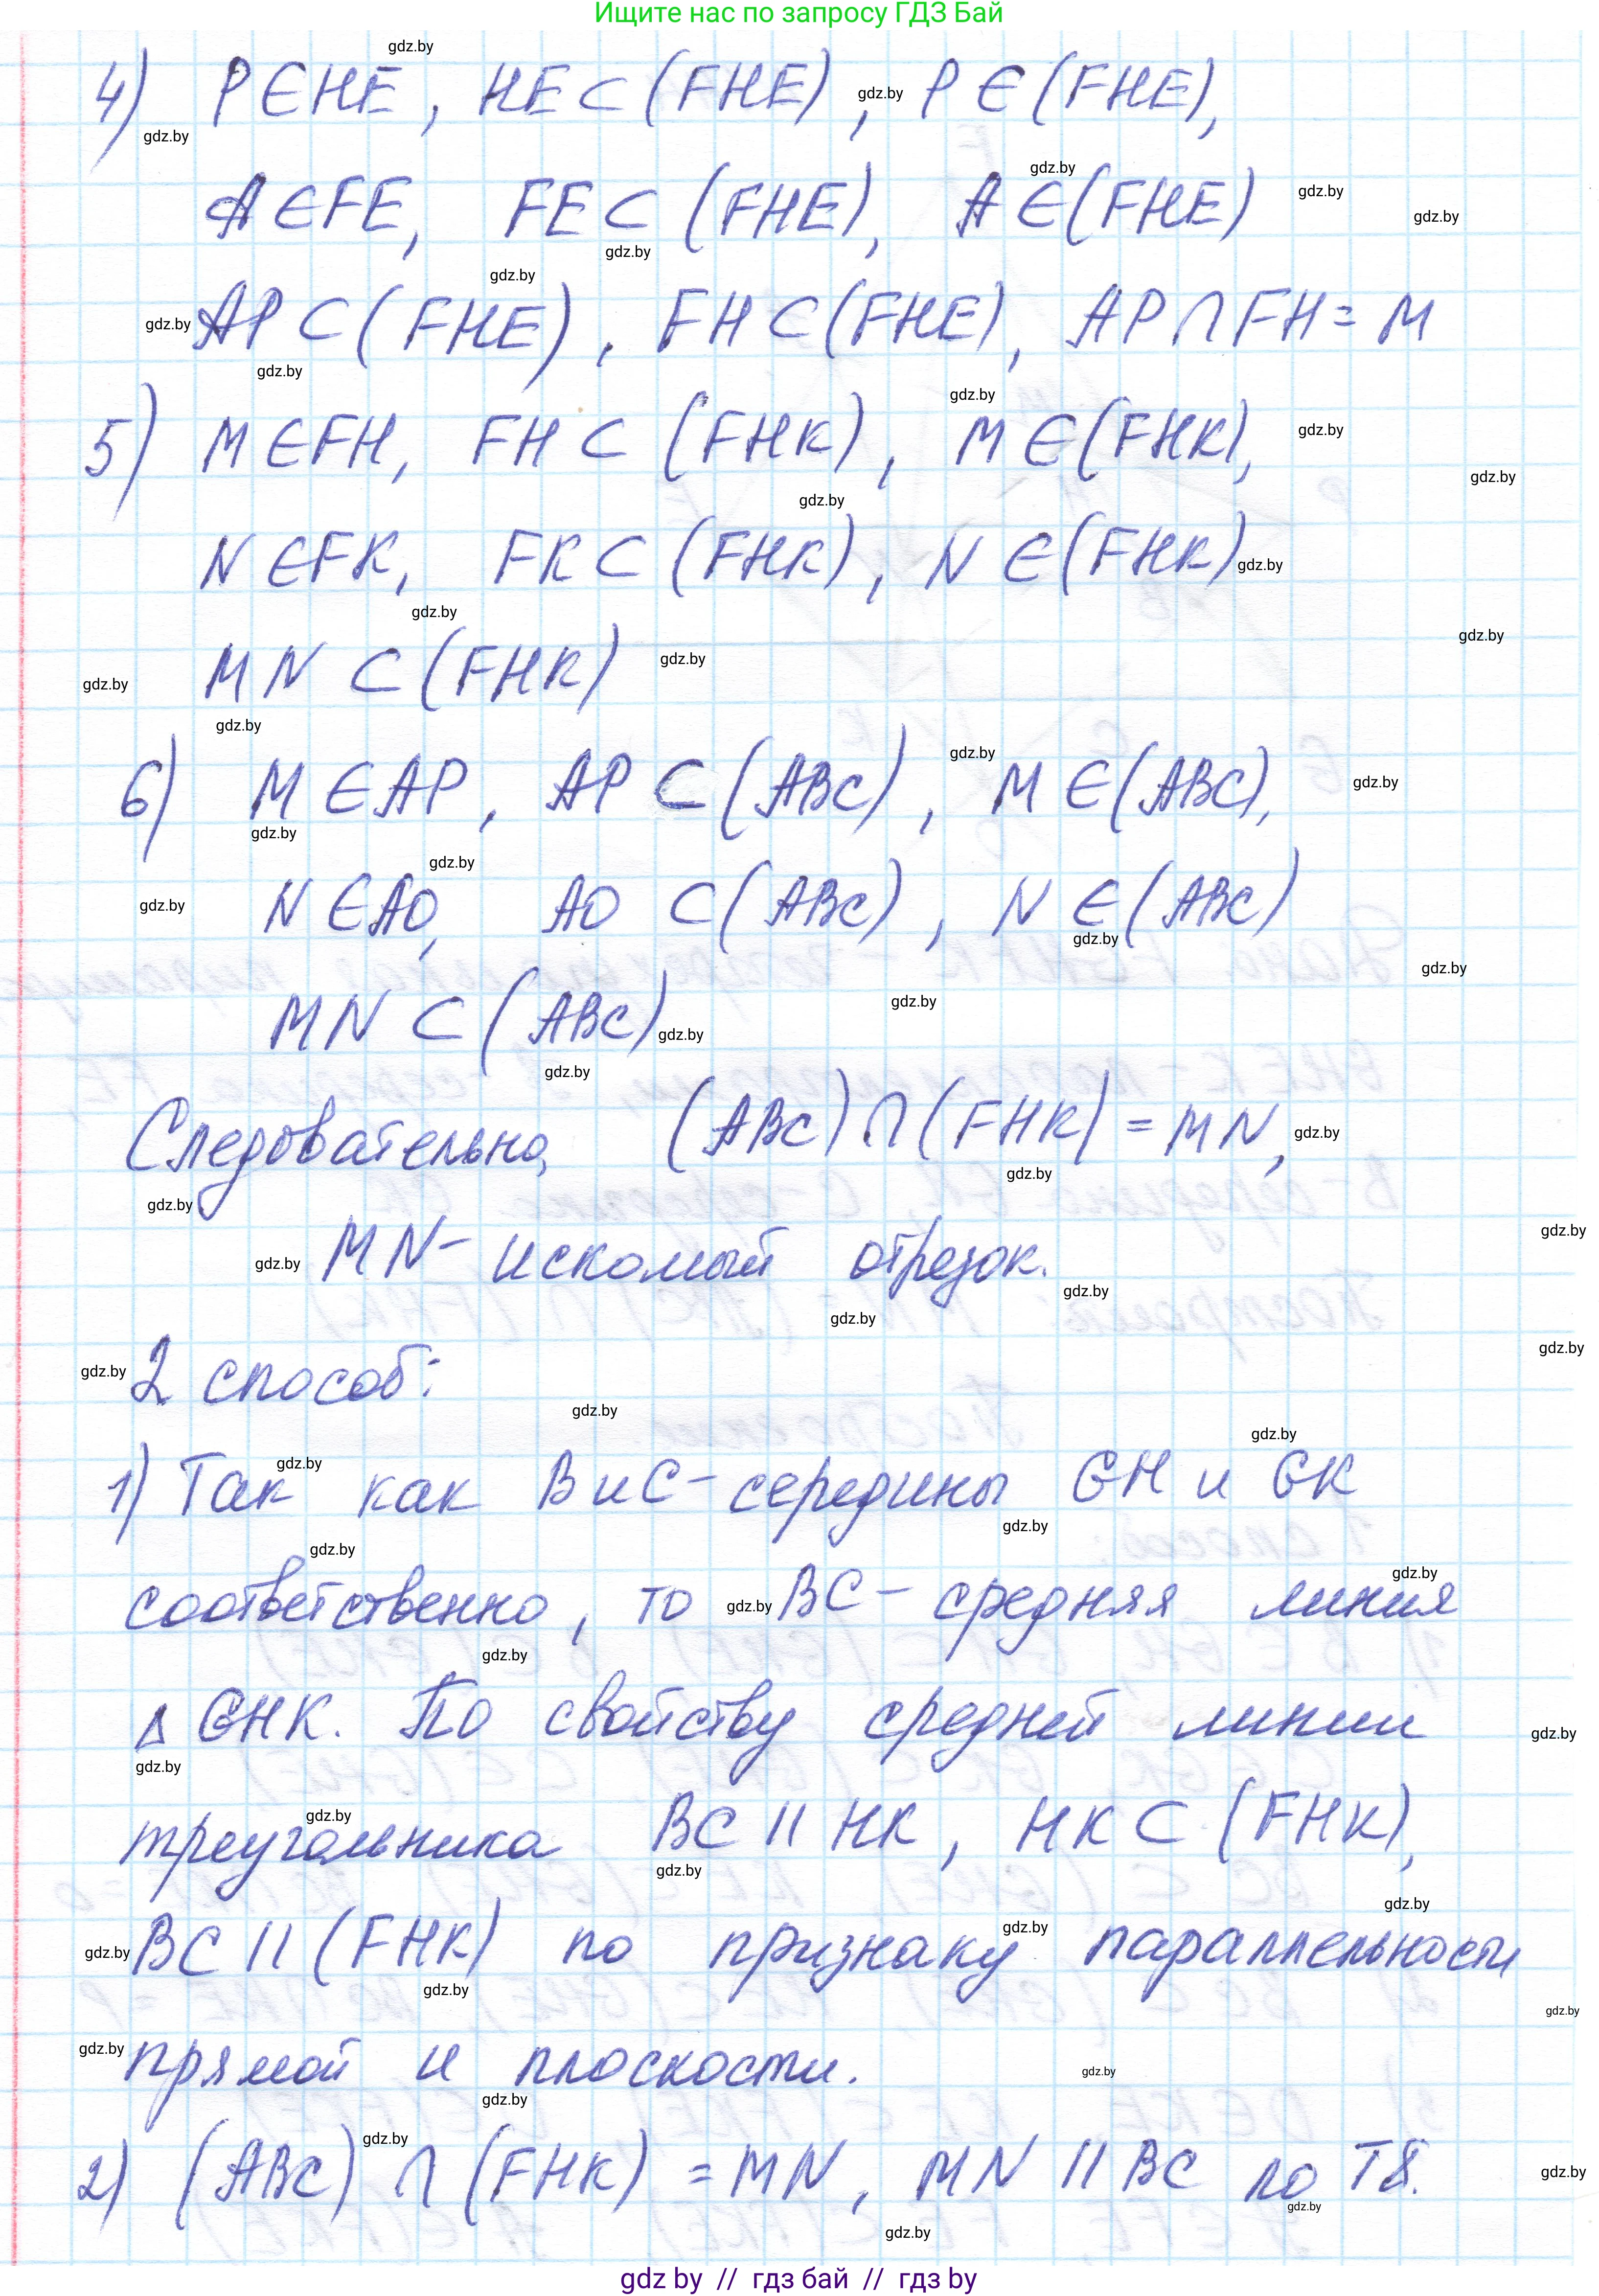 Ищите нас по запросу ГДЗ Бай
4) P∈HE, HE⊂(FHE), P∈(FHE),
A∈FE, FE⊂(FHE), A∈(FHE)
AP⊂(FHE), FH⊂(FHE), AP∩FH=M
5) M∈FH, FH⊂(FHK), M∈(FHK),
N∈FK, FK⊂(FHK), N∈(FHK)
MN⊂(FHK)
6) M∈AP, AP⊂(ABC), M∈(ABC),
N∈AO, AO⊂(ABC), N∈(ABC)
MN⊂(ABC)
Следовательно, (ABC)∩(FHK)=MN,
MN- искомый отрезок.
2 способ:
1) Так как B и C- середины GH и GK
соответственно, то BC- средняя линия
Δ GHK. По свойству средней линии
треугольника BC || HK, HK⊂(FHK),
BC || (FHK) по признаку параллельности
прямой и плоскости.
2) (ABC)∩(FHK)=MN, MN || BC по T8.
gdz by // гдз бай // гдз by